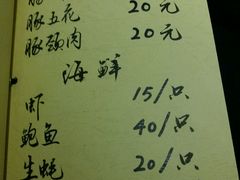 豚五花 20元
豚颈肉 20元
海鲜
虾 15/只
鲍鱼 40/只
生蚝 20/只